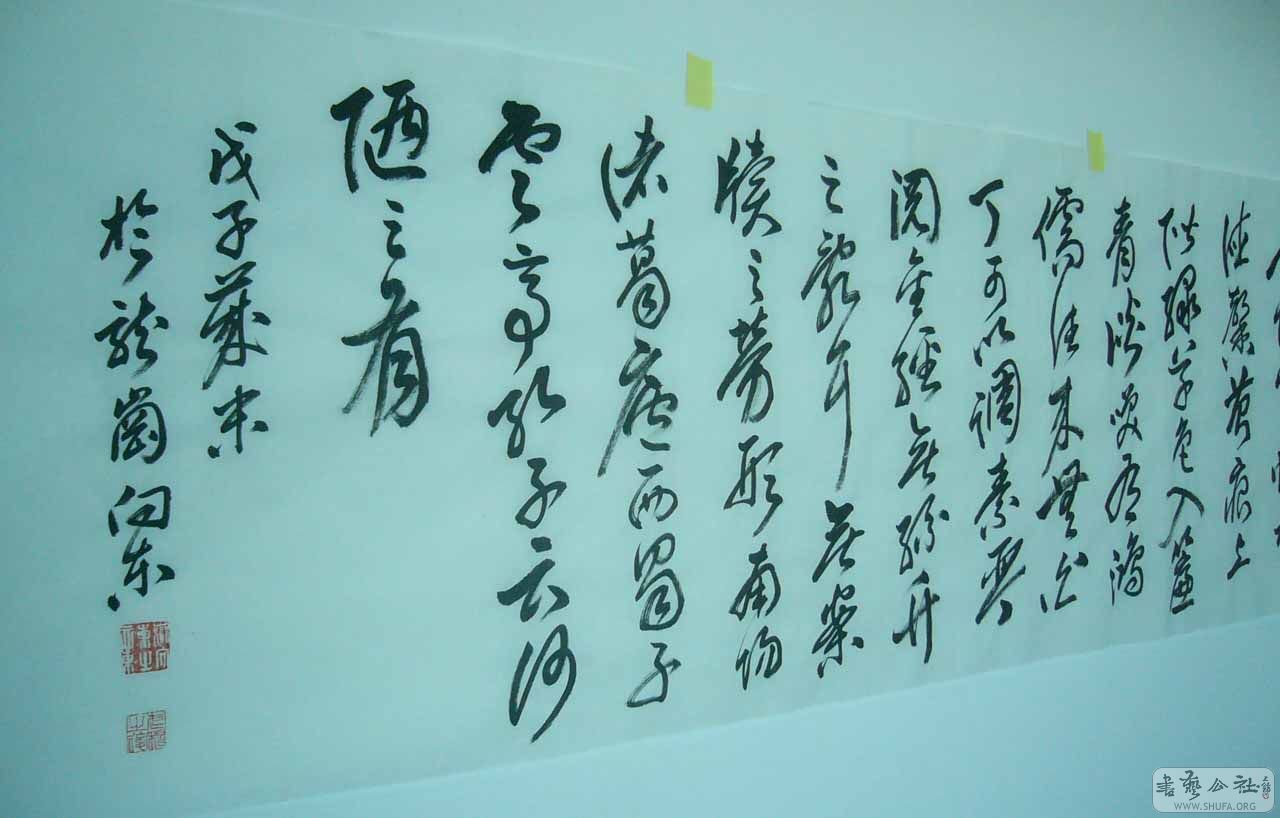 德馨苔痕上
階綠草色入簾
青談笑有鴻
儒往來無白
丁可以調素琴
閱金經無絲竹
之亂耳無案
牘之勞形南陽
諸葛廬西蜀子
雲亭孔子云何
陋之有
戊子歲末
於龍崗向東
書藝公社
WWW.SHUFA.ORG